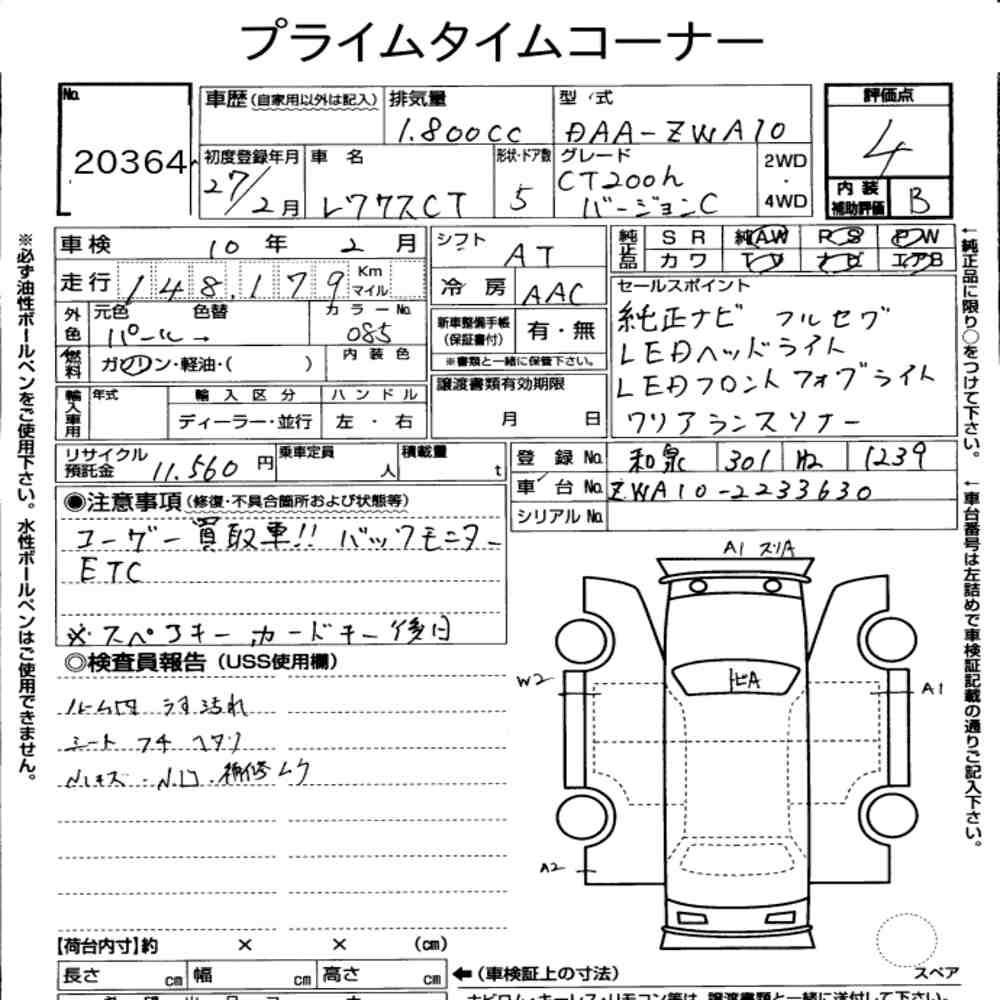 プライムタイムコーナー
No.
20364
車歴 (自家用以外は記入)
排気量
1.800cc
型 式
DAA-ZWA10
評価点
4
初度登録年月
27/2月
車 名
レクサスCT
形状・ドア数
5
グレード
CT200h
バージョンC
2WD
・
4WD
内 装
補助評価
B
車検 10年 2月
走行 148,179 Km
マイル
外色
元色 色替
パール→
カラーNo.
085
燃料
ガソリン・軽油・( )
内 装 色
輸入車用
年式
輸 入 区 分
ディーラー・並行
ハ ン ド ル
左 ・ 右
リサイクル
預託金 11,560 円
乗車定員
人
積載量
t
シフト AT
冷 房 AAC
新車整備手帳
(保証書付)
有・無
※書類と一緒に保管下さい。
譲渡書類有効期限
月 日
純正品
SR 純AW PS PW
カワ TV ナビ エアB
セールスポイント
純正ナビ フルセグ
LEDヘッドライト
LEDフロントフォグライト
クリアランスソナー
登 録 No. 和泉 301 1239
車 台 No. ZWA10-2233630
シリアル No.
◉注意事項 (修復・不具合箇所および状態等)
ユーザー買取車!! バックモニター
ETC
※スペアキー、カードキー後日
◎検査員報告 (USS使用欄)
ルーム内 うす汚れ
シート フチ ヘタリ
補修ムラ
A1 スリA
トビA
W2
A1
A2
スペア
【荷台内寸】約 × × (cm)
長さ cm 幅 cm 高さ cm
←(車検証上の寸法)
※必ず油性ボールペンをご使用下さい。水性ボールペンはご使用できません。
←純正品に限り○をつけて下さい。
←車台番号は左詰めで車検証記載の通りご記入下さい。